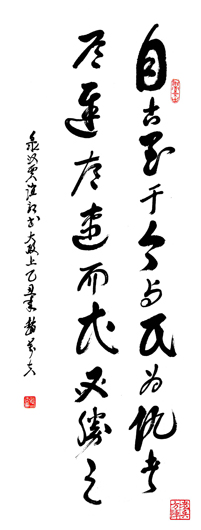 自古至于今与民为仇者
有迟有速而民必胜之
录汉贾谊新书大政上乙丑年